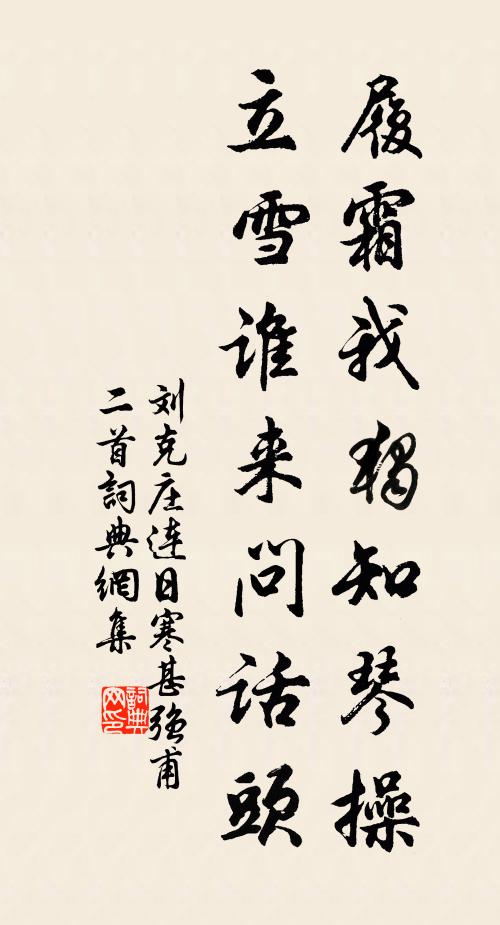 履霜我独知琴操
立雪谁来问话頭
刘克庄连日寒甚强甫
二首詞典網集
詞典网印